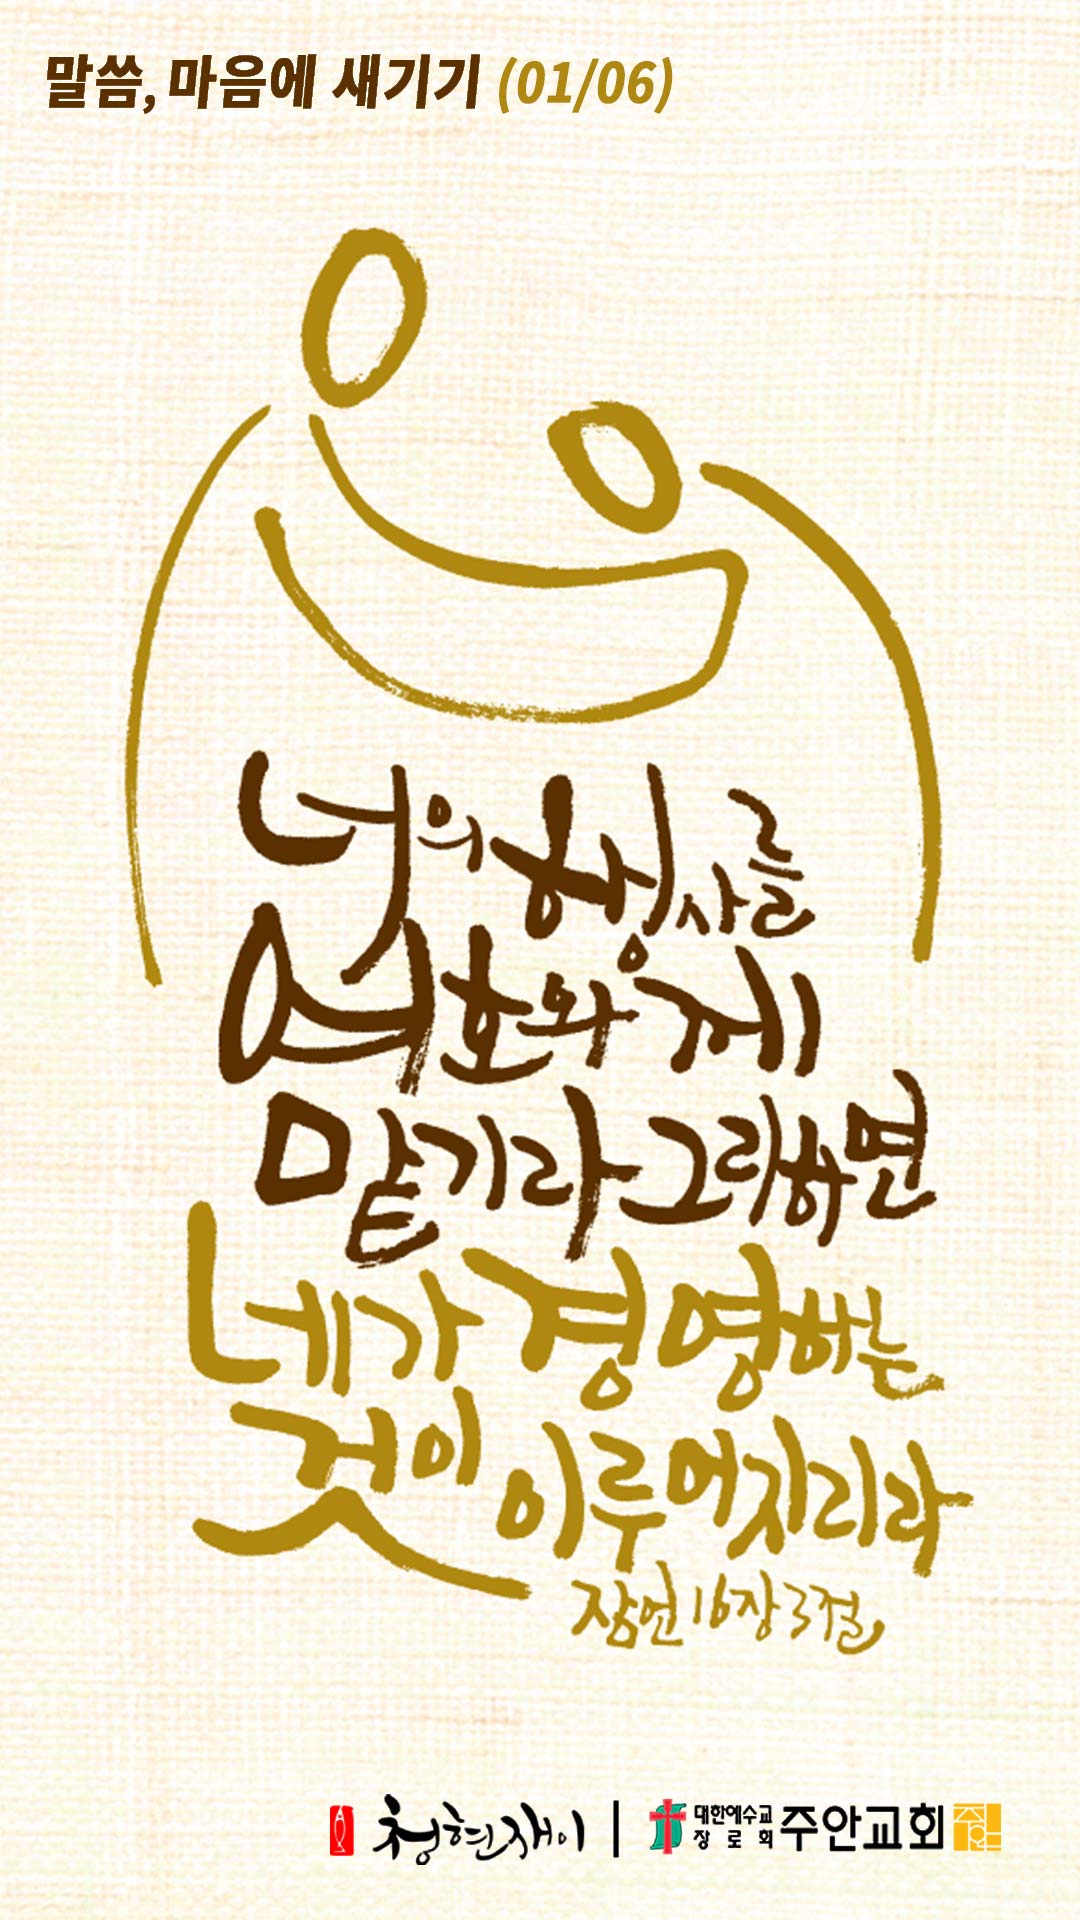 말씀, 마음에 새기기 (01/06)
너의 행사를
여호와께
맡기라 그리하면
네가 경영하는
것이 이루어지리라
잠언 16장 3절
청현재이 | 대한예수교
장로회 주안교회 주안